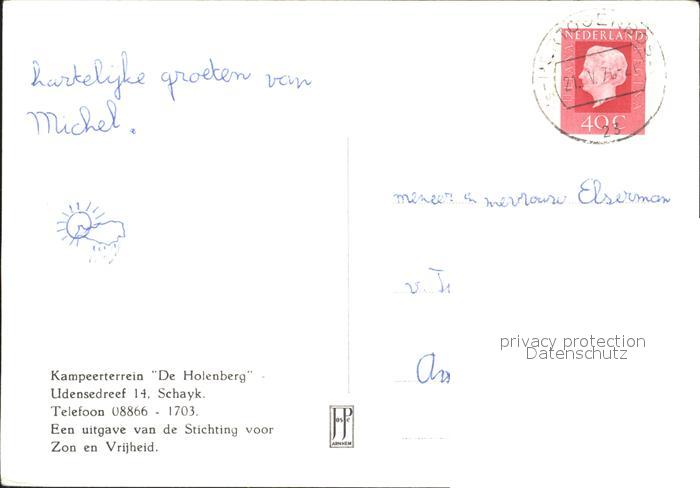 hartelijke groeten van
Michel.
NEDERLAND
40 C
23
meneer en mevrouw Elserman
v.
privacy protection
Datenschutz
Kampeerterrein "De Holenberg" -
Udensedreef 14, Schayk.
Telefoon 08866 - 1703.
Een uitgave van de Stichting voor
Zon en Vrijheid.
JosPé
ARNHEM